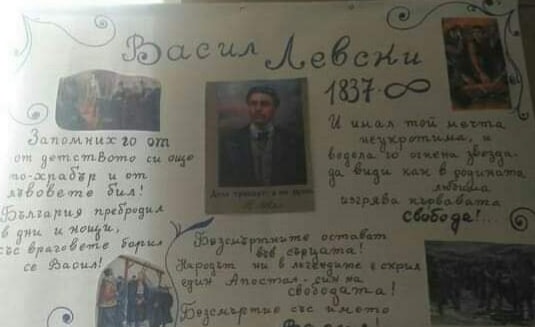 Васил Левски
1837-∞
Запомних го от
от детството си още
по-храбър и от
лъвовете бил!
България пребродил
в дни и нощи,
със враговете борил
се Васил!
Дела трябват, а не думи.
И имал той мечта
неукротима, и
водела го огнена звезда
да види как в родината
любима
изгрява кървавата
свобода!...
Безсмъртните остават
във сърцата!
Народът ни в легендите е скрил
един Апостол - син на
свободата!
Безсмъртие със името